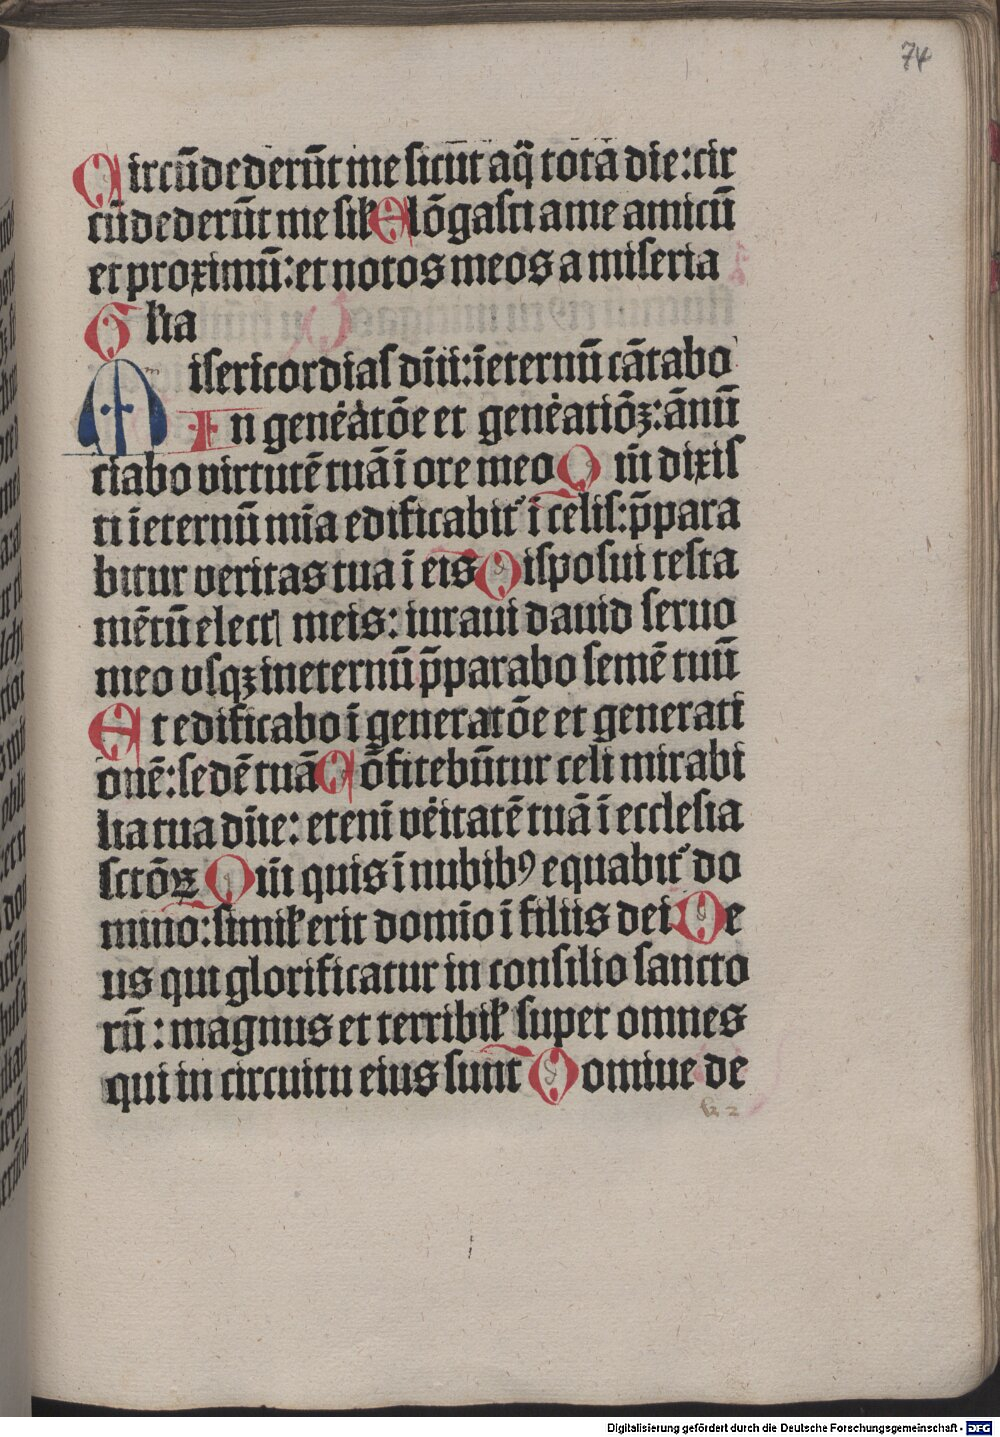 74
Circūdederūt me sicut aq̄ tota die: cir
cūdederūt me sil' Elōgasti a me amicū
et proximū: et notos meos a miseria
Glia
Misericordias dn̄i: ī eternū cātabo
In gener̄atōe et gener̄atiōꝫ: ānū
ciabo virtutē tuā ī ore meo Qm̄ dixis
ti ī eternū mīa edificabit᷑ ī celis: p̄para
bitur veritas tua ī eis Disposui testa
mētū electꝭ meis: iuraui dauid seruo
meo vsqꝫ in eternū p̄parabo semē tuū
Et edificabo ī generatōe et generati
onē: sedē tuā Cōfitebūtur celi mirabi
lia tua dn̄e: eteni vēitatē tuā ī ecclesia
sctōꝝ Qm̄ quis ī nubibꝰ equabit᷑ do
mino: simil' erit domīo ī filiis dei De
us qui glorificatur in consilio sancto
rū: magnus et terribil' super omnes
qui in circuitu eius sunt Domine de
k 2
Digitalisierung gefördert durch die Deutsche Forschungsgemeinschaft - DFG